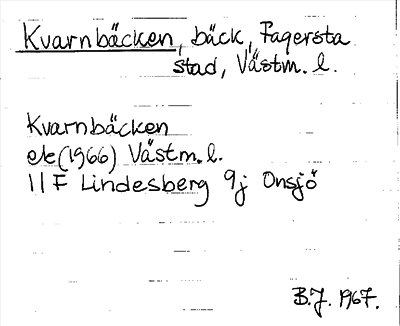 Kvarnbäcken, bäck, Fagersta
stad, Västm. l.
Kvarnbäcken
ek (1966) Västm. l.
11 F Lindesberg 9j Onsjö
B.J. 1967.